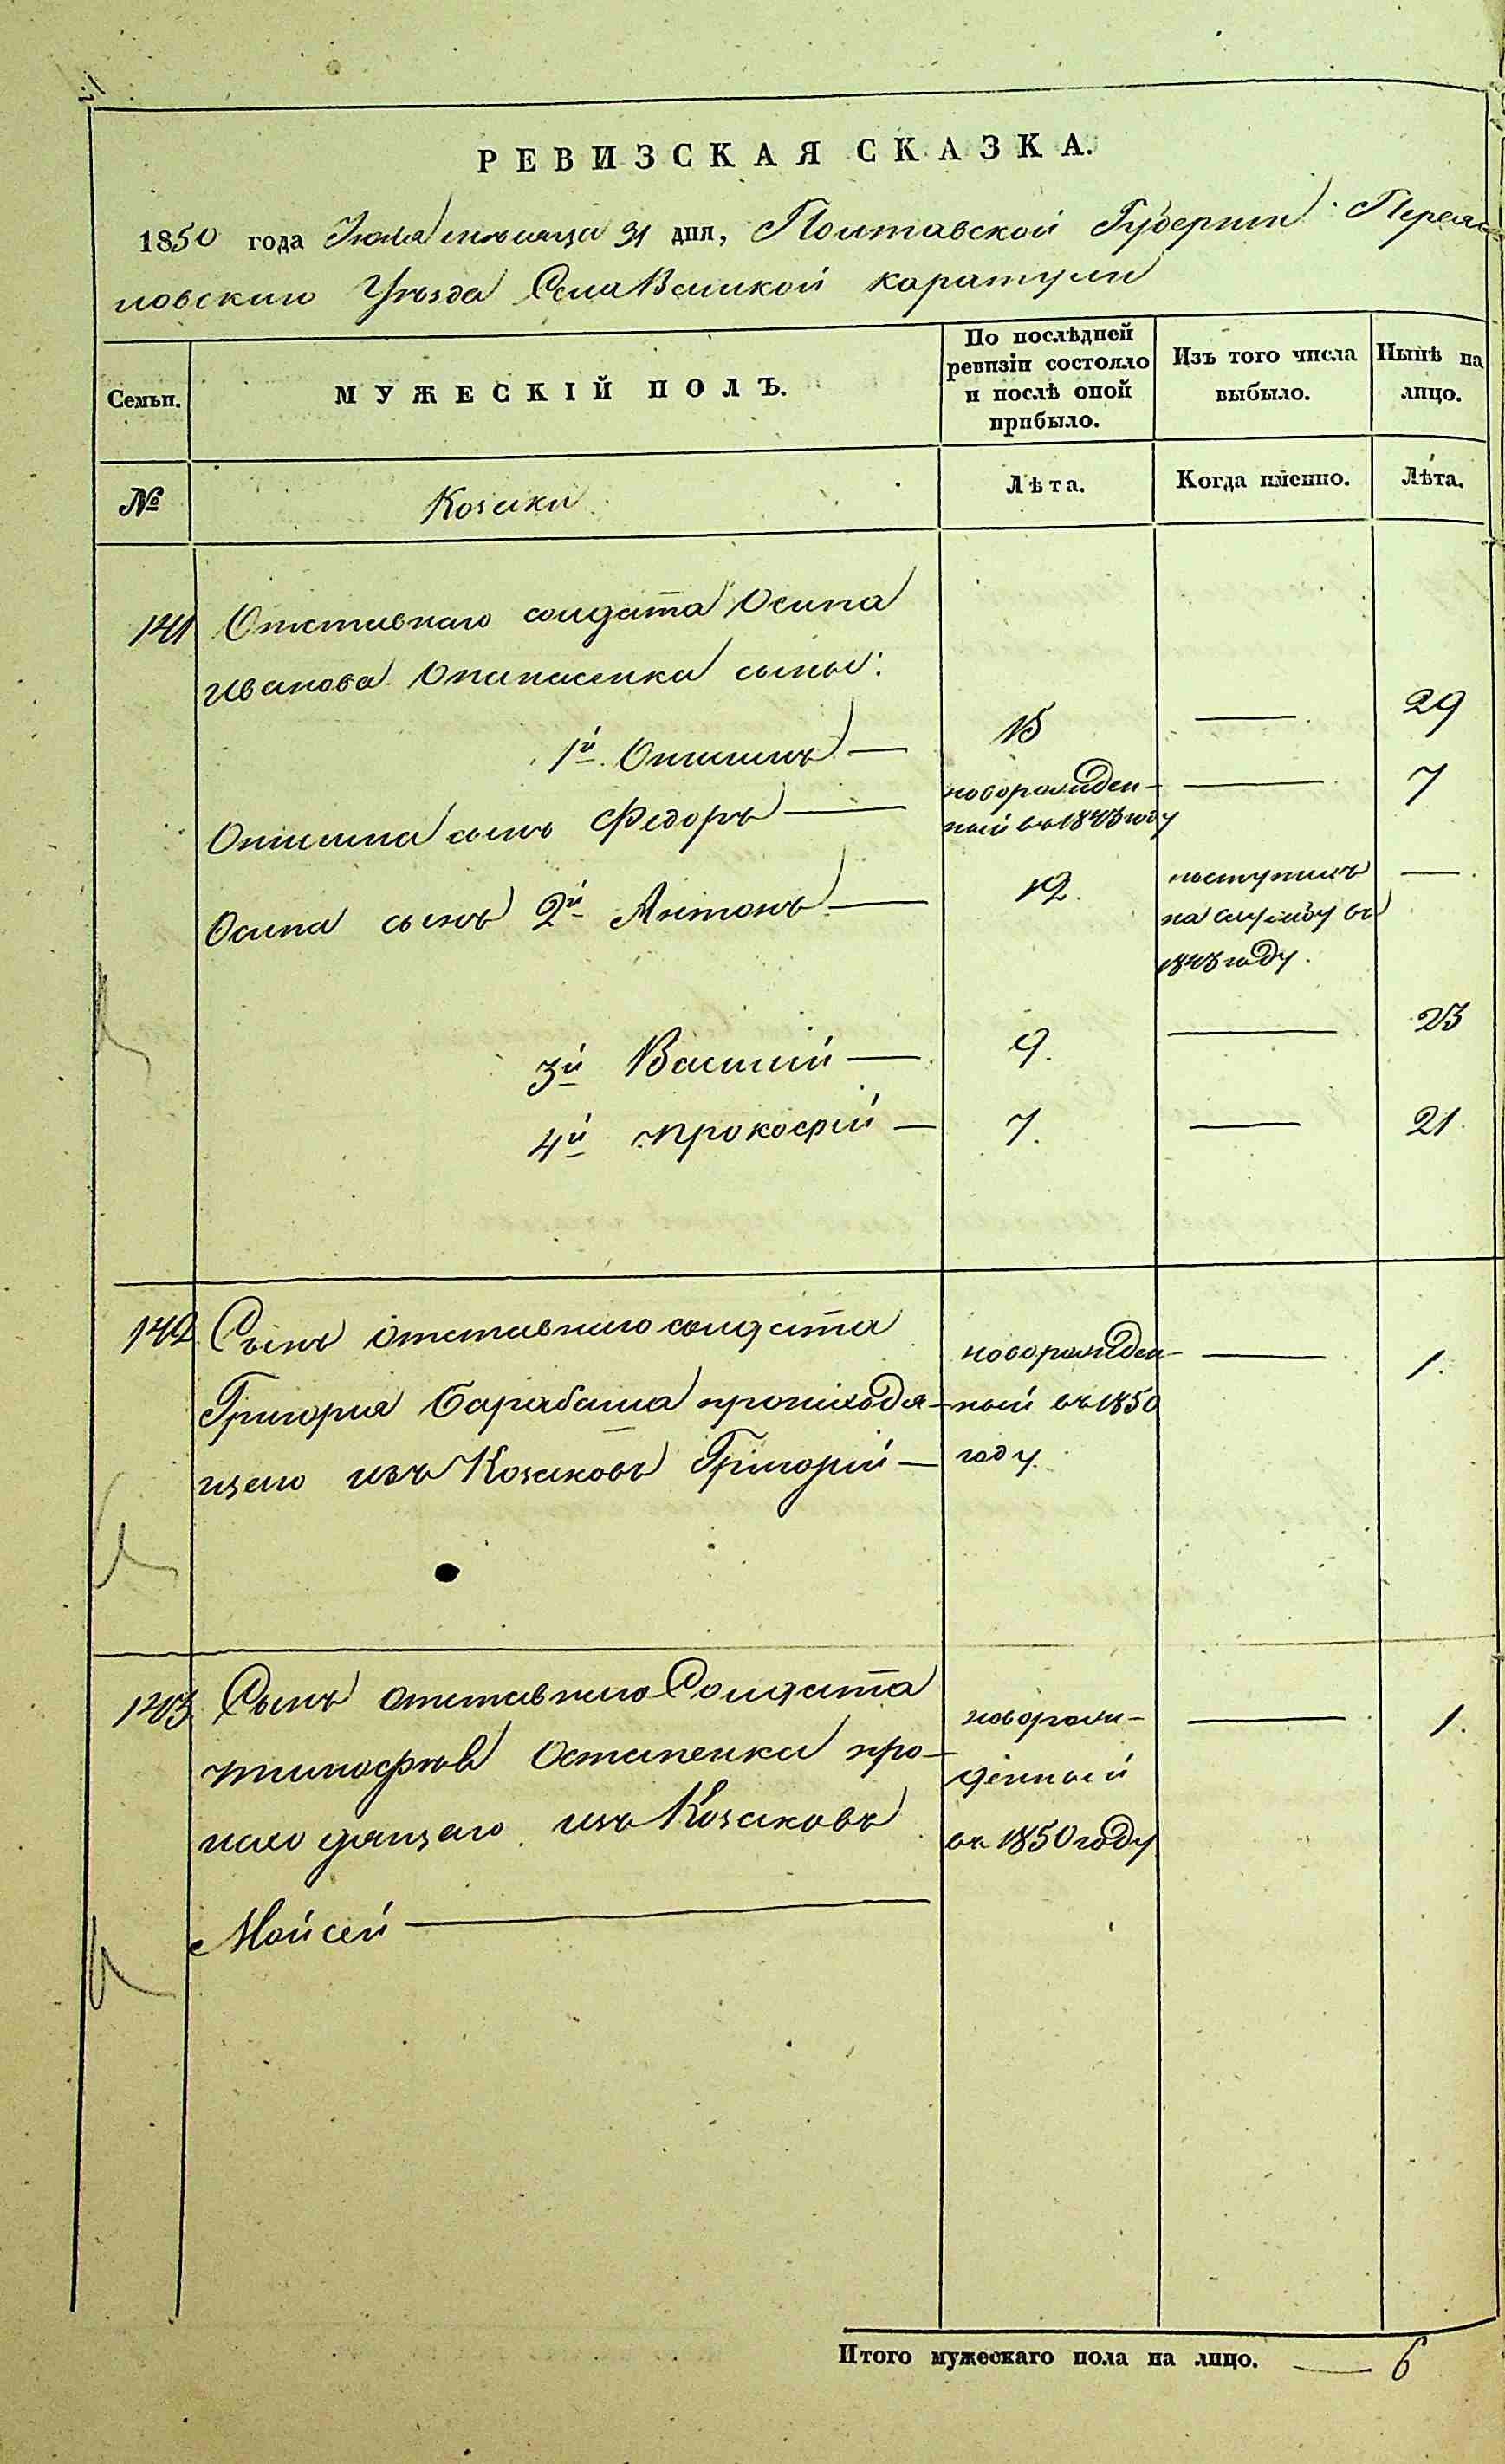 РЕВИЗСКАЯ СКАЗКА.
1850 года Іюля мѣсяца 31 дня, Полтавской Губерніи Переяс
ловскаго Уѣзда Села Великой каратули
Семьи.
МУЖЕСКІЙ ПОЛЪ.
По послѣдней
ревизіи состояло
и послѣ оной
прибыло.
Изъ того числа
выбыло.
Нынѣ на
лицо.
№
Козаки
Лѣта.
Когда именно.
Лѣта.
141 Отставнаго солдата Осипа
Иванова Опанасенка сыны:
1й Онисимъ — 15 — 29
Онисима сынъ Федоръ — новорожден-
ный въ 1843 году — 7
Осипа сынъ 2й Антонъ — 12. поступилъ
на службу въ
1843 году. —
3й Василій — 9. — 23
4й Прокофій — 7. — 21.
142 Сынъ отставнаго солдата
Григорія Барабаша происходя-
щаго изъ Козаковъ Григорій —
новорожден-
ный въ 1850
году. — 1.
143 Сынъ отставнаго Солдата
Тимофѣя Остапенка про-
исходящаго изъ Козаковъ
Мойсей —
новорож-
денный
въ 1850 году — 1.
Итого мужескаго пола на лицо. — 6